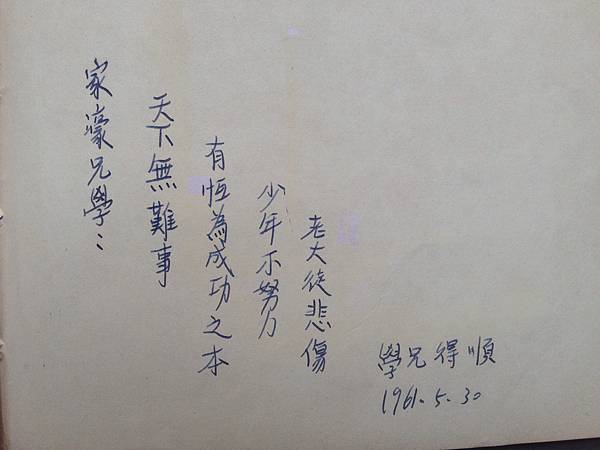 家濠兄學：
天下無難事
有恆為成功之本
少年不努力
老大徒悲傷
學兄得順
1961.5.30